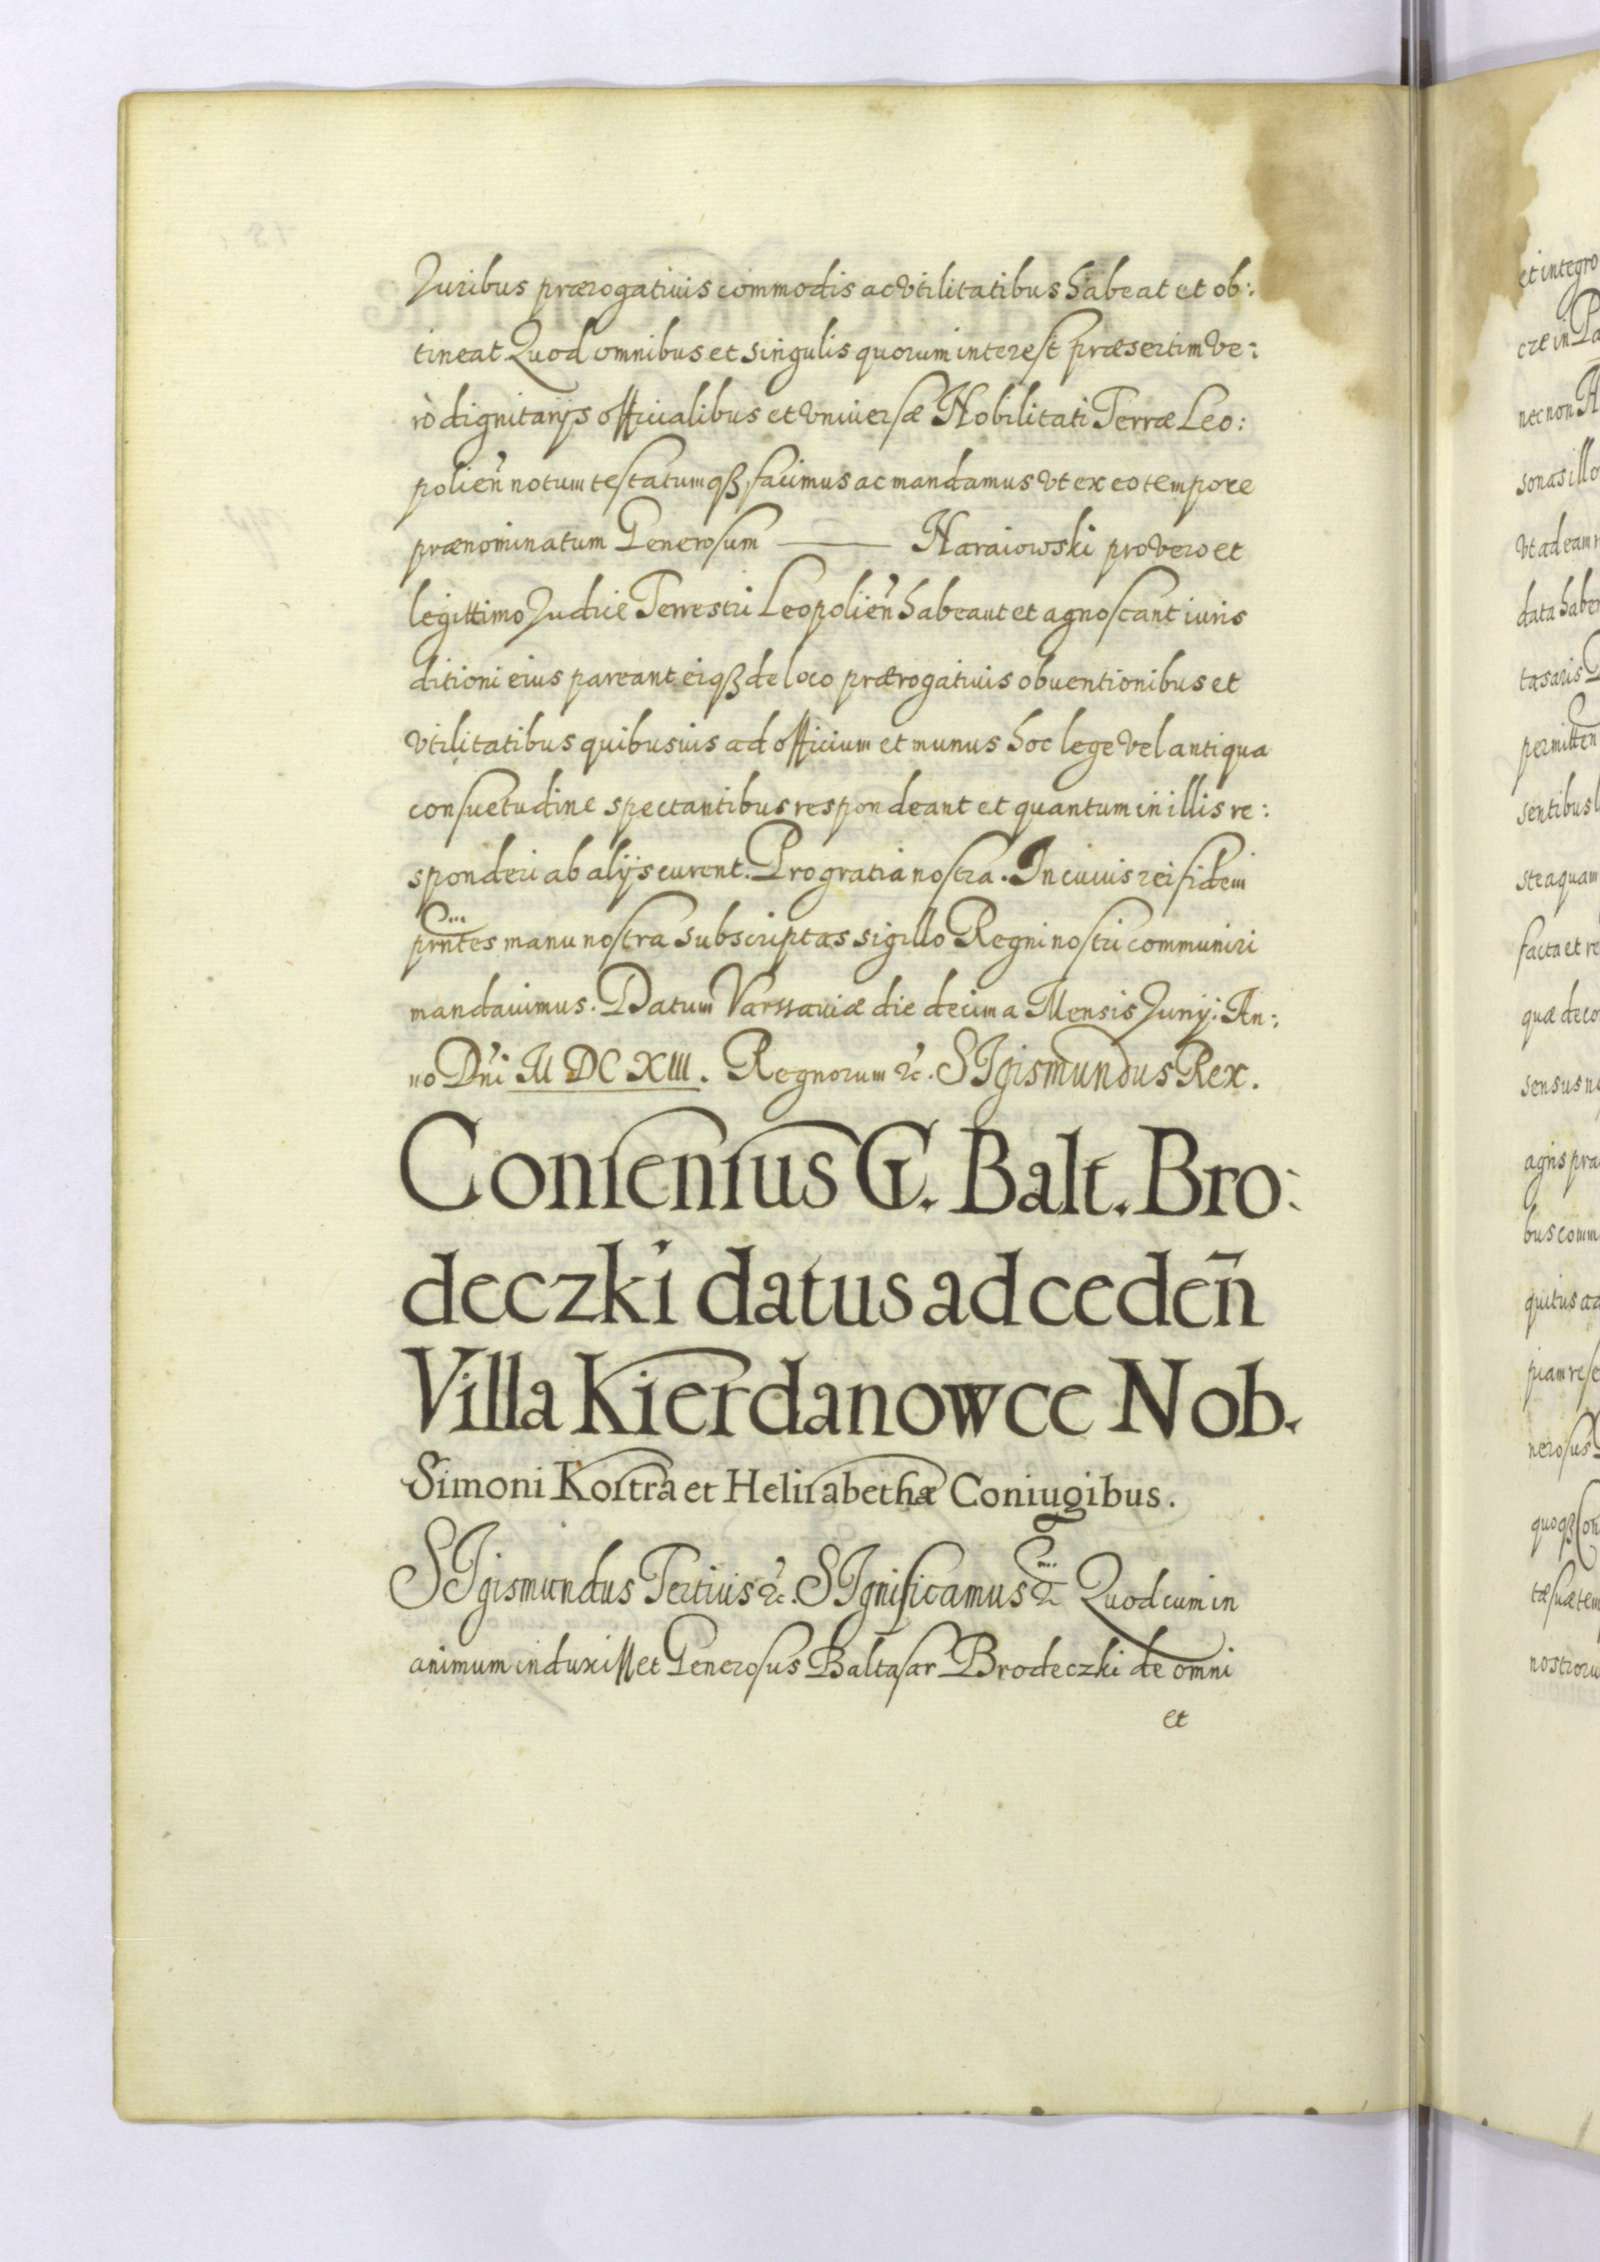 Juribus prærogativis commodis ac vtilitatibus habeat et ob:
tineat Quod omnibus et singulis quorum interest præsertim ve:
rò dignitarijs officialibus et vniversæ Nobilitati Terræ Leo:
polien̄ notum testatumqꝫ facimus ac mandamus vt ex eo tempore
prænominatum Generosum ——— Naraiowski pro vero et
legittimo Judice Terrestri Leopolien̄ habeant et agnoscant iuris
ditioni eius pareant eiqꝫ de loco prærogativis obventionibus et
vtilitatibus quibusuis ad officium et munus hoc lege vel antiqua
consuetudine spectantibus respondeant et quantum in illis re:
sponderi ab alijs curent. Pro gratia nostra. In cuius rei fidem
prn̄tes manu nostra subscriptas sigillo Regni nostri communiri
mandavimus. Datum Varssaviæ die decima Mensis Junij: An:
no Dn̄i M DC XIII. Regnorum &c. SIgismundus Rex.
Consensus G. Balt. Bro:
deczki datus ad ceden̄
Villa Kierdanowce Nob.
Simoni Kostra et Helisabethæ Coniugibus.
SIgismundus Tertius &c. SIgnificamus &c Quod cum in
animum induxisset Generosus Baltasar Brodeczki de omni
et
et integro
cre in Pa
nec non
sonas illo
vt ad eam
data habe
tas aris
permitten
sentibus
ste aquam
facta et re
quæ de co
sensus no
agris pra
bus comm
quitus
piam rese
nerosus
quoqꝫ Con
tæ suæ tem
nostroru